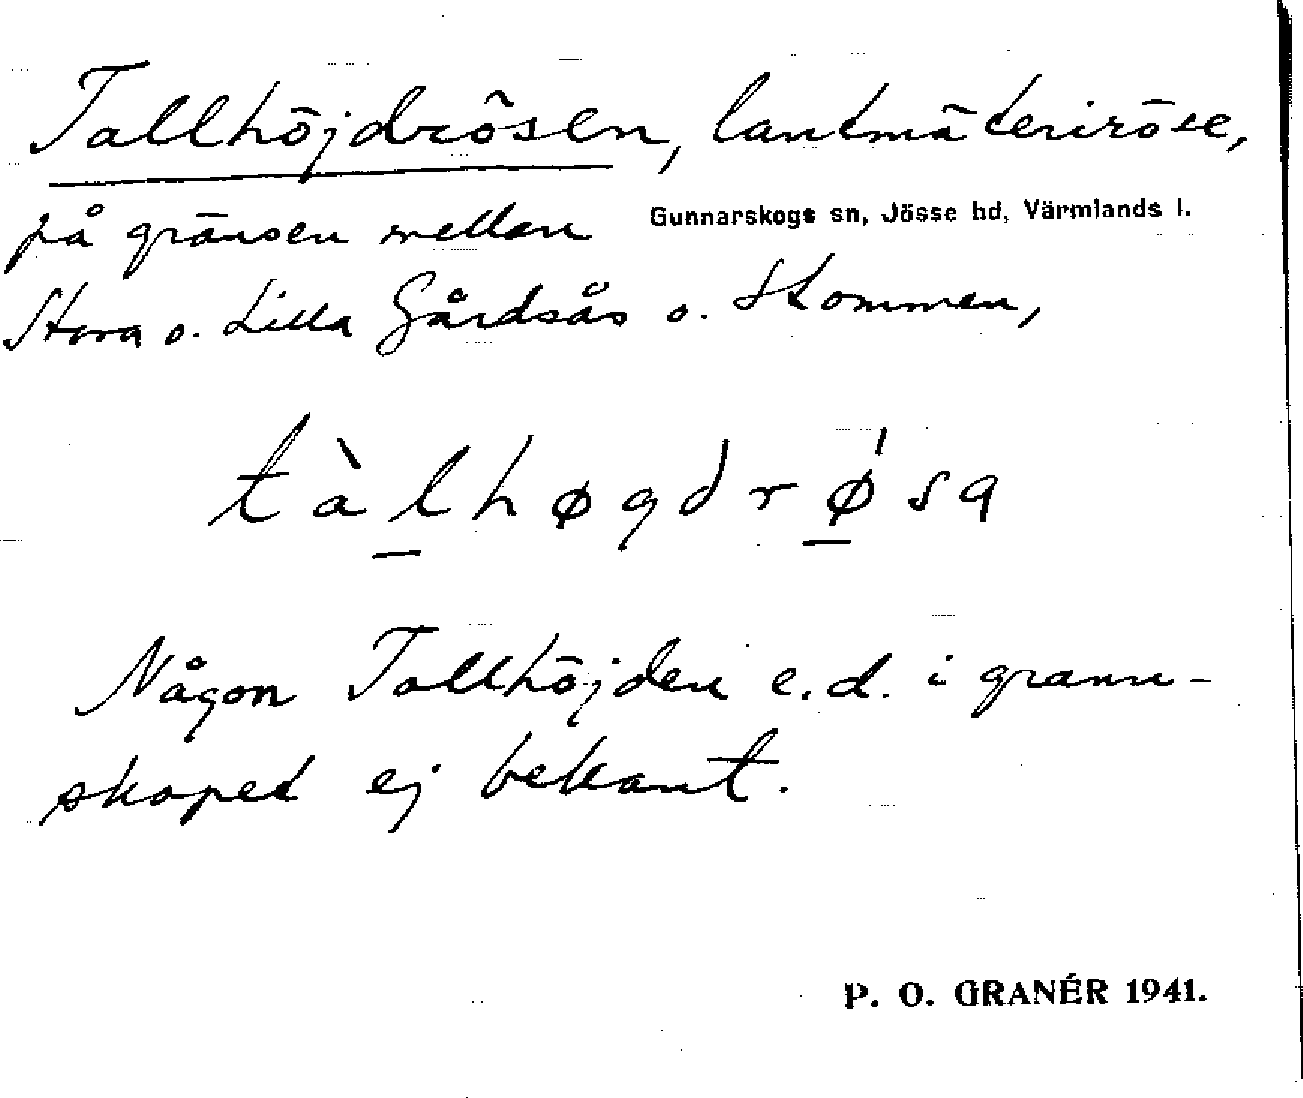 Tallhöjdrösen, lantmäteriröse,
på gränsen mellan Gunnarskogs sn, Jösse hd, Värmlands l.
Stora o. Lilla Gårdsås o. Stommen,
tàlhøgdrǿsa
Någon Tallhöjden e.d. i grann-
skapet ej bekant.
P. O. GRANÉR 1941.